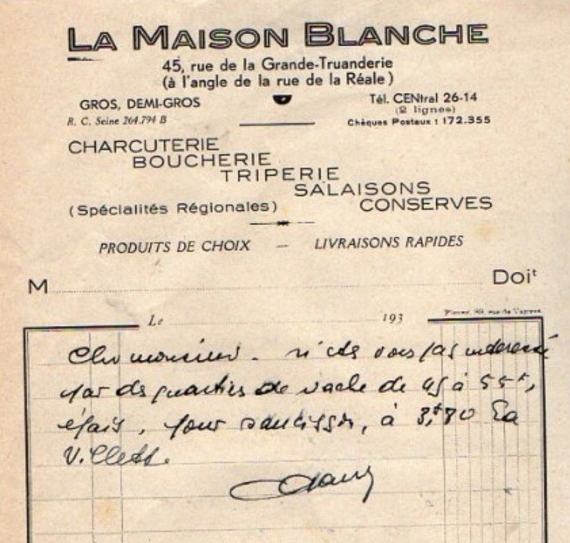 LA MAISON BLANCHE
45, rue de la Grande-Truanderie
(à l'angle de la rue de la Réale)
GROS, DEMI-GROS
R. C. Seine 264.794 B
Tél. CENtral 26-14
(2 lignes)
Chèques Postaux : 172.355
CHARCUTERIE
BOUCHERIE
TRIPERIE
SALAISONS
CONSERVES
(Spécialités Régionales)
PRODUITS DE CHOIX — LIVRAISONS RAPIDES
M Doit
Le 193
Cher monsieur - n'êtes vous pas intéressé
par des quartiers de vache de 45 à 55 k,
épais, pour saucisson, à 3,80 La
Villette.